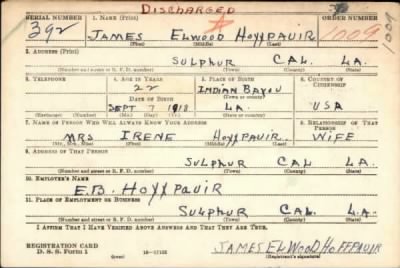 DISCHARGED
SERIAL NUMBER 1. NAME (Print) ORDER NUMBER
392 JAMES ELWOOD HOYXPAUIR 1009 1009
(First) (Middle) (Last)
2. ADDRESS (Print)
SULPHUR CAL. LA.
(Number and street or R. F. D. number) (Town) (County) (State)
3. TELEPHONE 4. AGE IN YEARS 5. PLACE OF BIRTH 6. COUNTRY OF CITIZENSHIP
22 INDIAN BAYOU
DATE OF BIRTH (Town or county)
SEPT 7 1918 LA. USA
(Exchange) (Number) (Mo.) (Day) (Yr.) (State or country)
7. NAME OF PERSON WHO WILL ALWAYS KNOW YOUR ADDRESS 8. RELATIONSHIP OF THAT PERSON
MRS IRENE HOYXPAUIR WIFE
(Mr., Mrs., Miss) (First) (Middle) (Last)
9. ADDRESS OF THAT PERSON
SULPHUR CAL LA.
(Number and street or R. F. D. number) (Town) (County) (State)
10. EMPLOYER'S NAME
E.B. HOYXPAUIR
11. PLACE OF EMPLOYMENT OR BUSINESS
SULPHUR CAL. LA.
(Number and street or R. F. D. number) (Town) (County) (State)
I AFFIRM THAT I HAVE VERIFIED ABOVE ANSWERS AND THAT THEY ARE TRUE.
REGISTRATION CARD
D. S. S. Form 1 (over) JAMES ELWOOD HOFFPAUIR
(Registrant's signature)